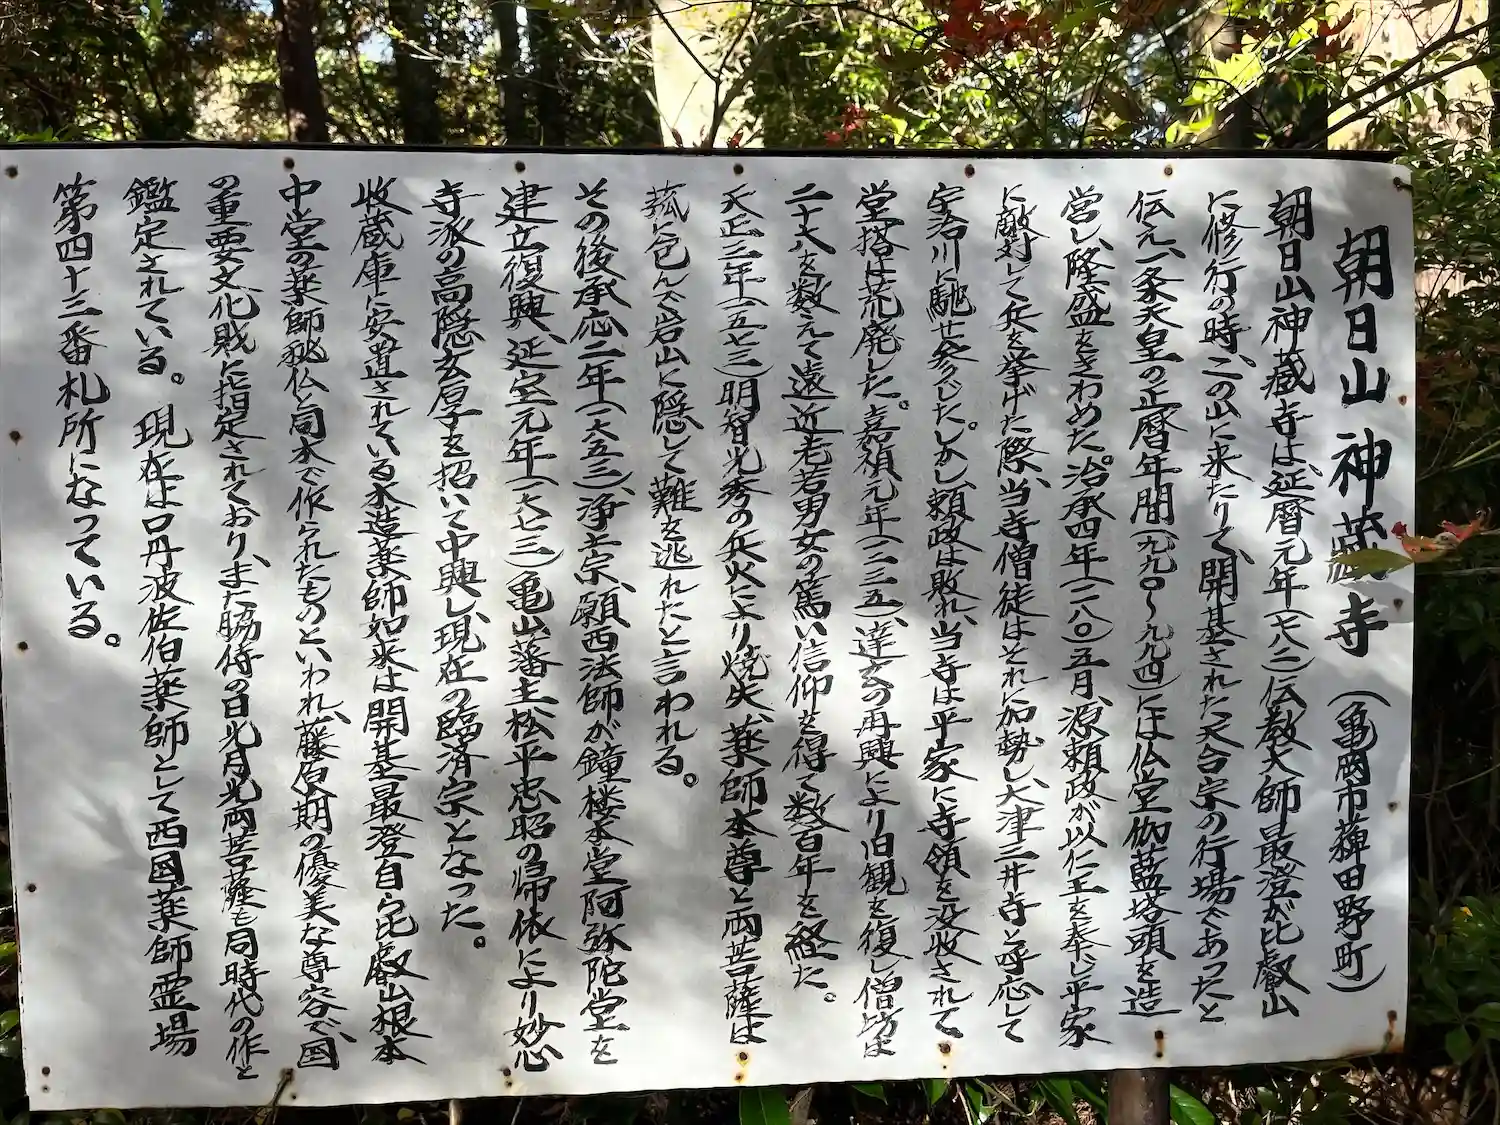 朝日山 神蔵寺 (亀岡市薭田野町)
朝日山神蔵寺は、延暦元年(七八二)伝教大師最澄が比叡山
に修行の時、この山に来たりて、開基された天台宗の行場であったと
伝え、一条天皇の正暦年間(九九〇〜九九四)には仏堂伽藍塔頭を造
営し、隆盛をきわめた。治承四年(一一八〇)五月、源頼政が以仁王を奉じ平家
に敵対して兵を挙げた際、当寺僧徒はそれに加勢し、大津三井寺と呼応して
宇治川に馳せ参じた。しかし、頼政は敗れ、当寺は平家に寺領を没収されて
堂塔は荒廃した。嘉禎元年(一二三五)、達玄の再興により旧観を復し僧坊は
二十八を数えて遠近老若男女の篤い信仰を得て数百年を経た。
天正三年(一五七三)明智光秀の兵火により焼失、薬師本尊と両菩薩は
菰に包んで岩山に隠して難を逃れたと言われる。
その後承応二年(一六五三)、浄土宗、願西法師が鐘楼本堂阿弥陀堂を
建立復興、延宝元年(一六七三)亀山藩主松平忠昭の帰依により妙心
寺派の高隠玄厚子を招いて中興し、現在の臨済宗となった。
収蔵庫に安置されている木造薬師如来は開基最澄自ら比叡山根本
中堂の薬師秘仏と同木で作られたものといわれ、藤原期の優美な尊容で、国
の重要文化財に指定されており、また脇侍の日光月光両菩薩も同時代の作と
鑑定されている。 現在は口丹波佐伯薬師として西国薬師霊場
第四十三番札所になっている。